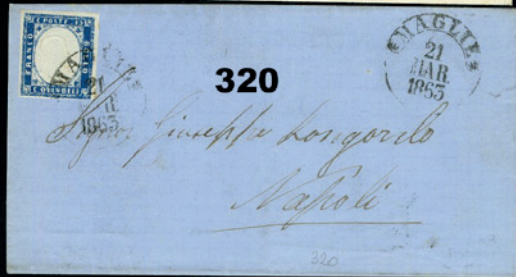 C. POSTE 15
FRANCO
BOLLO
C. QUINDICI
MAGLIE
21
MAR
1863
*MAGLIE*
21
MAR.
1863
320
Signor Giuseppe Longordo
Napoli
320